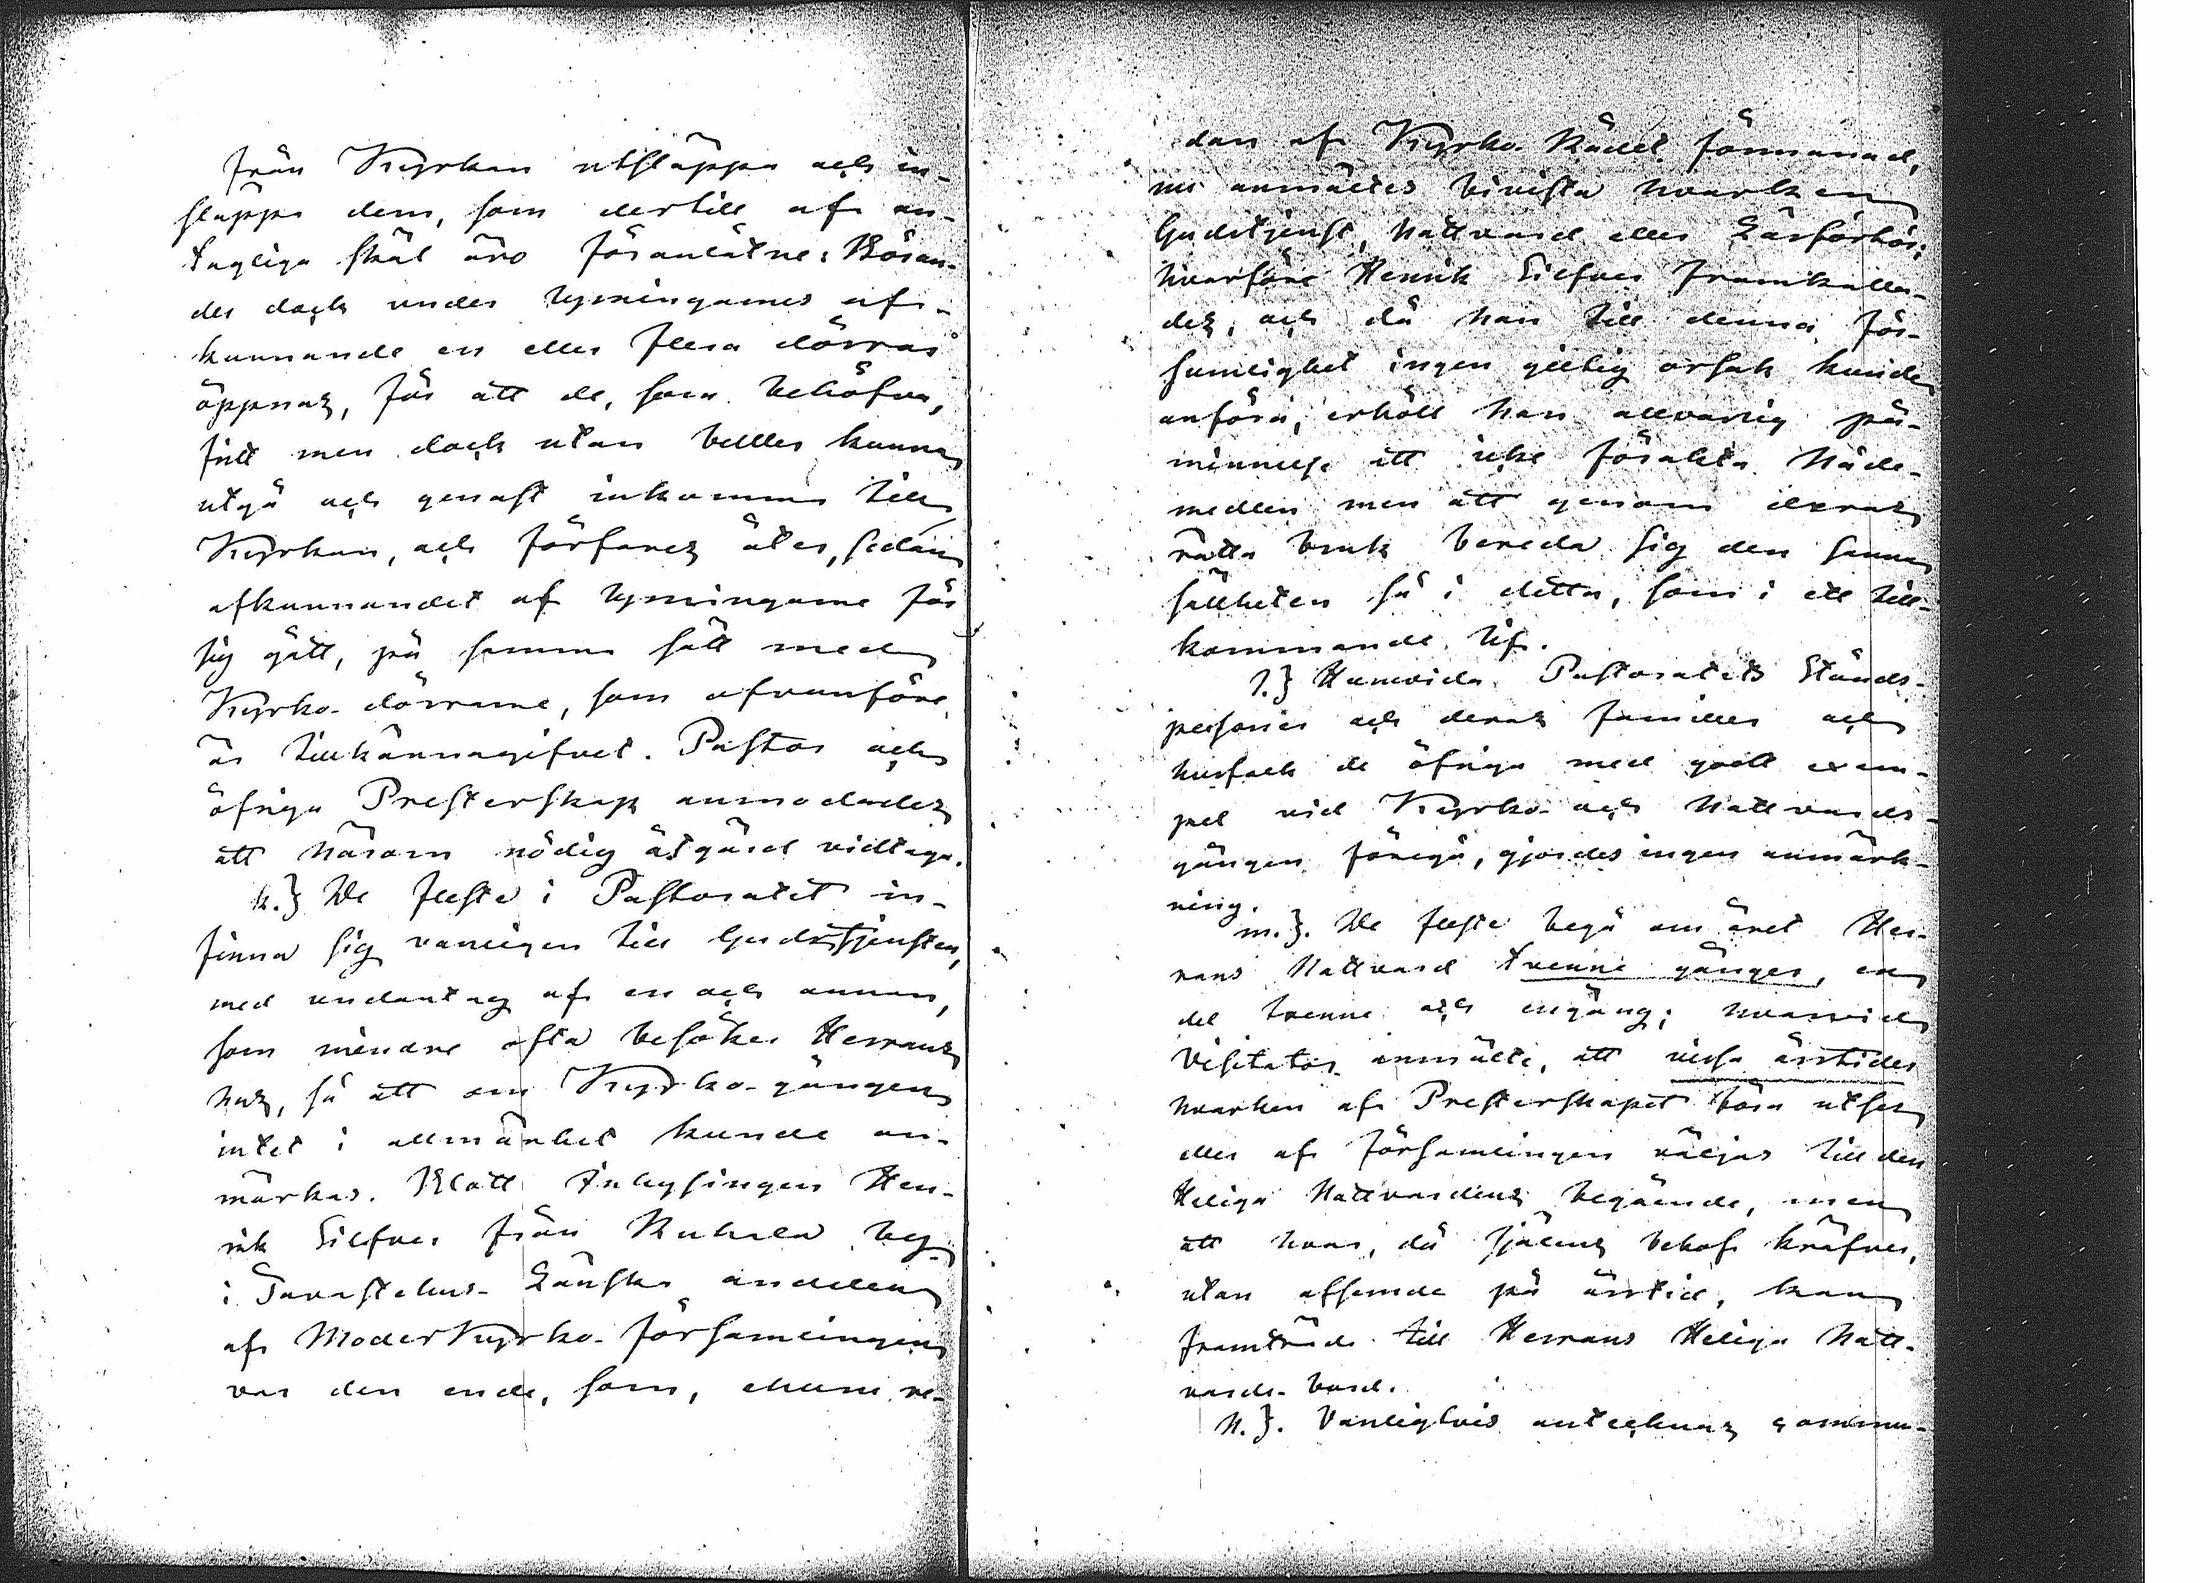 från Kyrkan utsläppa och in-
släppa dem, som dertill af an-
tagliga skäl äro föranlåtne: Böran-
des dock under lysningarnes af-
kunnande en eller flera dörrar
öppnas, för att de, som behöfva,
fritt men dock utan buller kunna
utgå och genast inkomma till
Kyrkan, och förfares åter, sedan
afkunnandet af lysningarne för
sig gått, på samma sätt med
Kyrko-dörrarne, som ofvanföre
är tillkännagifvet. Pastor och
öfriga Presterskap anmodades
att härom nödig åtgärd vidtaga.
k.} De fleste i Pastoratet in-
finna sig vanligen till Gudstjensten,
med undantag af en och annan,
som mindre ofta besöker Herrans
hus, så att om Kyrko-gången
intet i allmänhet kunde an-
märkas. Blott Inhysingen Hen-
rik Silfver från by
i Tavastehus-Länska andelen
af Moderkyrko-församlingen
var den ende, som, ehuru re-
dan af Kyrko-Rådet förmanad,
nu anmältes bivista hvarken
Gudstjenst, Nattvard eller Läsförhör;
hvarföre Henrik Silfver framkalla-
des, och då han till denna för-
sumlighet ingen giltig orsak kunde
anföra, erhöll han allvarlig på-
minnelse att icke förakta Nåde-
medlen men att genom deras
rätta bruk bereda sig den sanna
sällheten så i detta, som i ett till-
kommande lif.
l.} Huruvida Pastoratets Stånds-
personer och deras familler och
husfolk de öfriga med godt exem-
pel vid Kyrko- och Nattvards-
gången föregå, gjordes ingen anmärk-
ning.
m.}. De fleste begå om året Her-
rans Nattvard trenne gånger, en
del tvenne och engång; hvarvid
Visitator anmälte, att vissa årstider
hvarken af Presterskapet böra utses
eller af församlingen väljas till den
Heliga Nattvardens begående, men
att hvar, då själens behof kräfver,
utan afseende på årstid, kan
framträda till Herrans Heliga Natt-
vards-bord.
n.}. Vanligtvis antecknas commu-